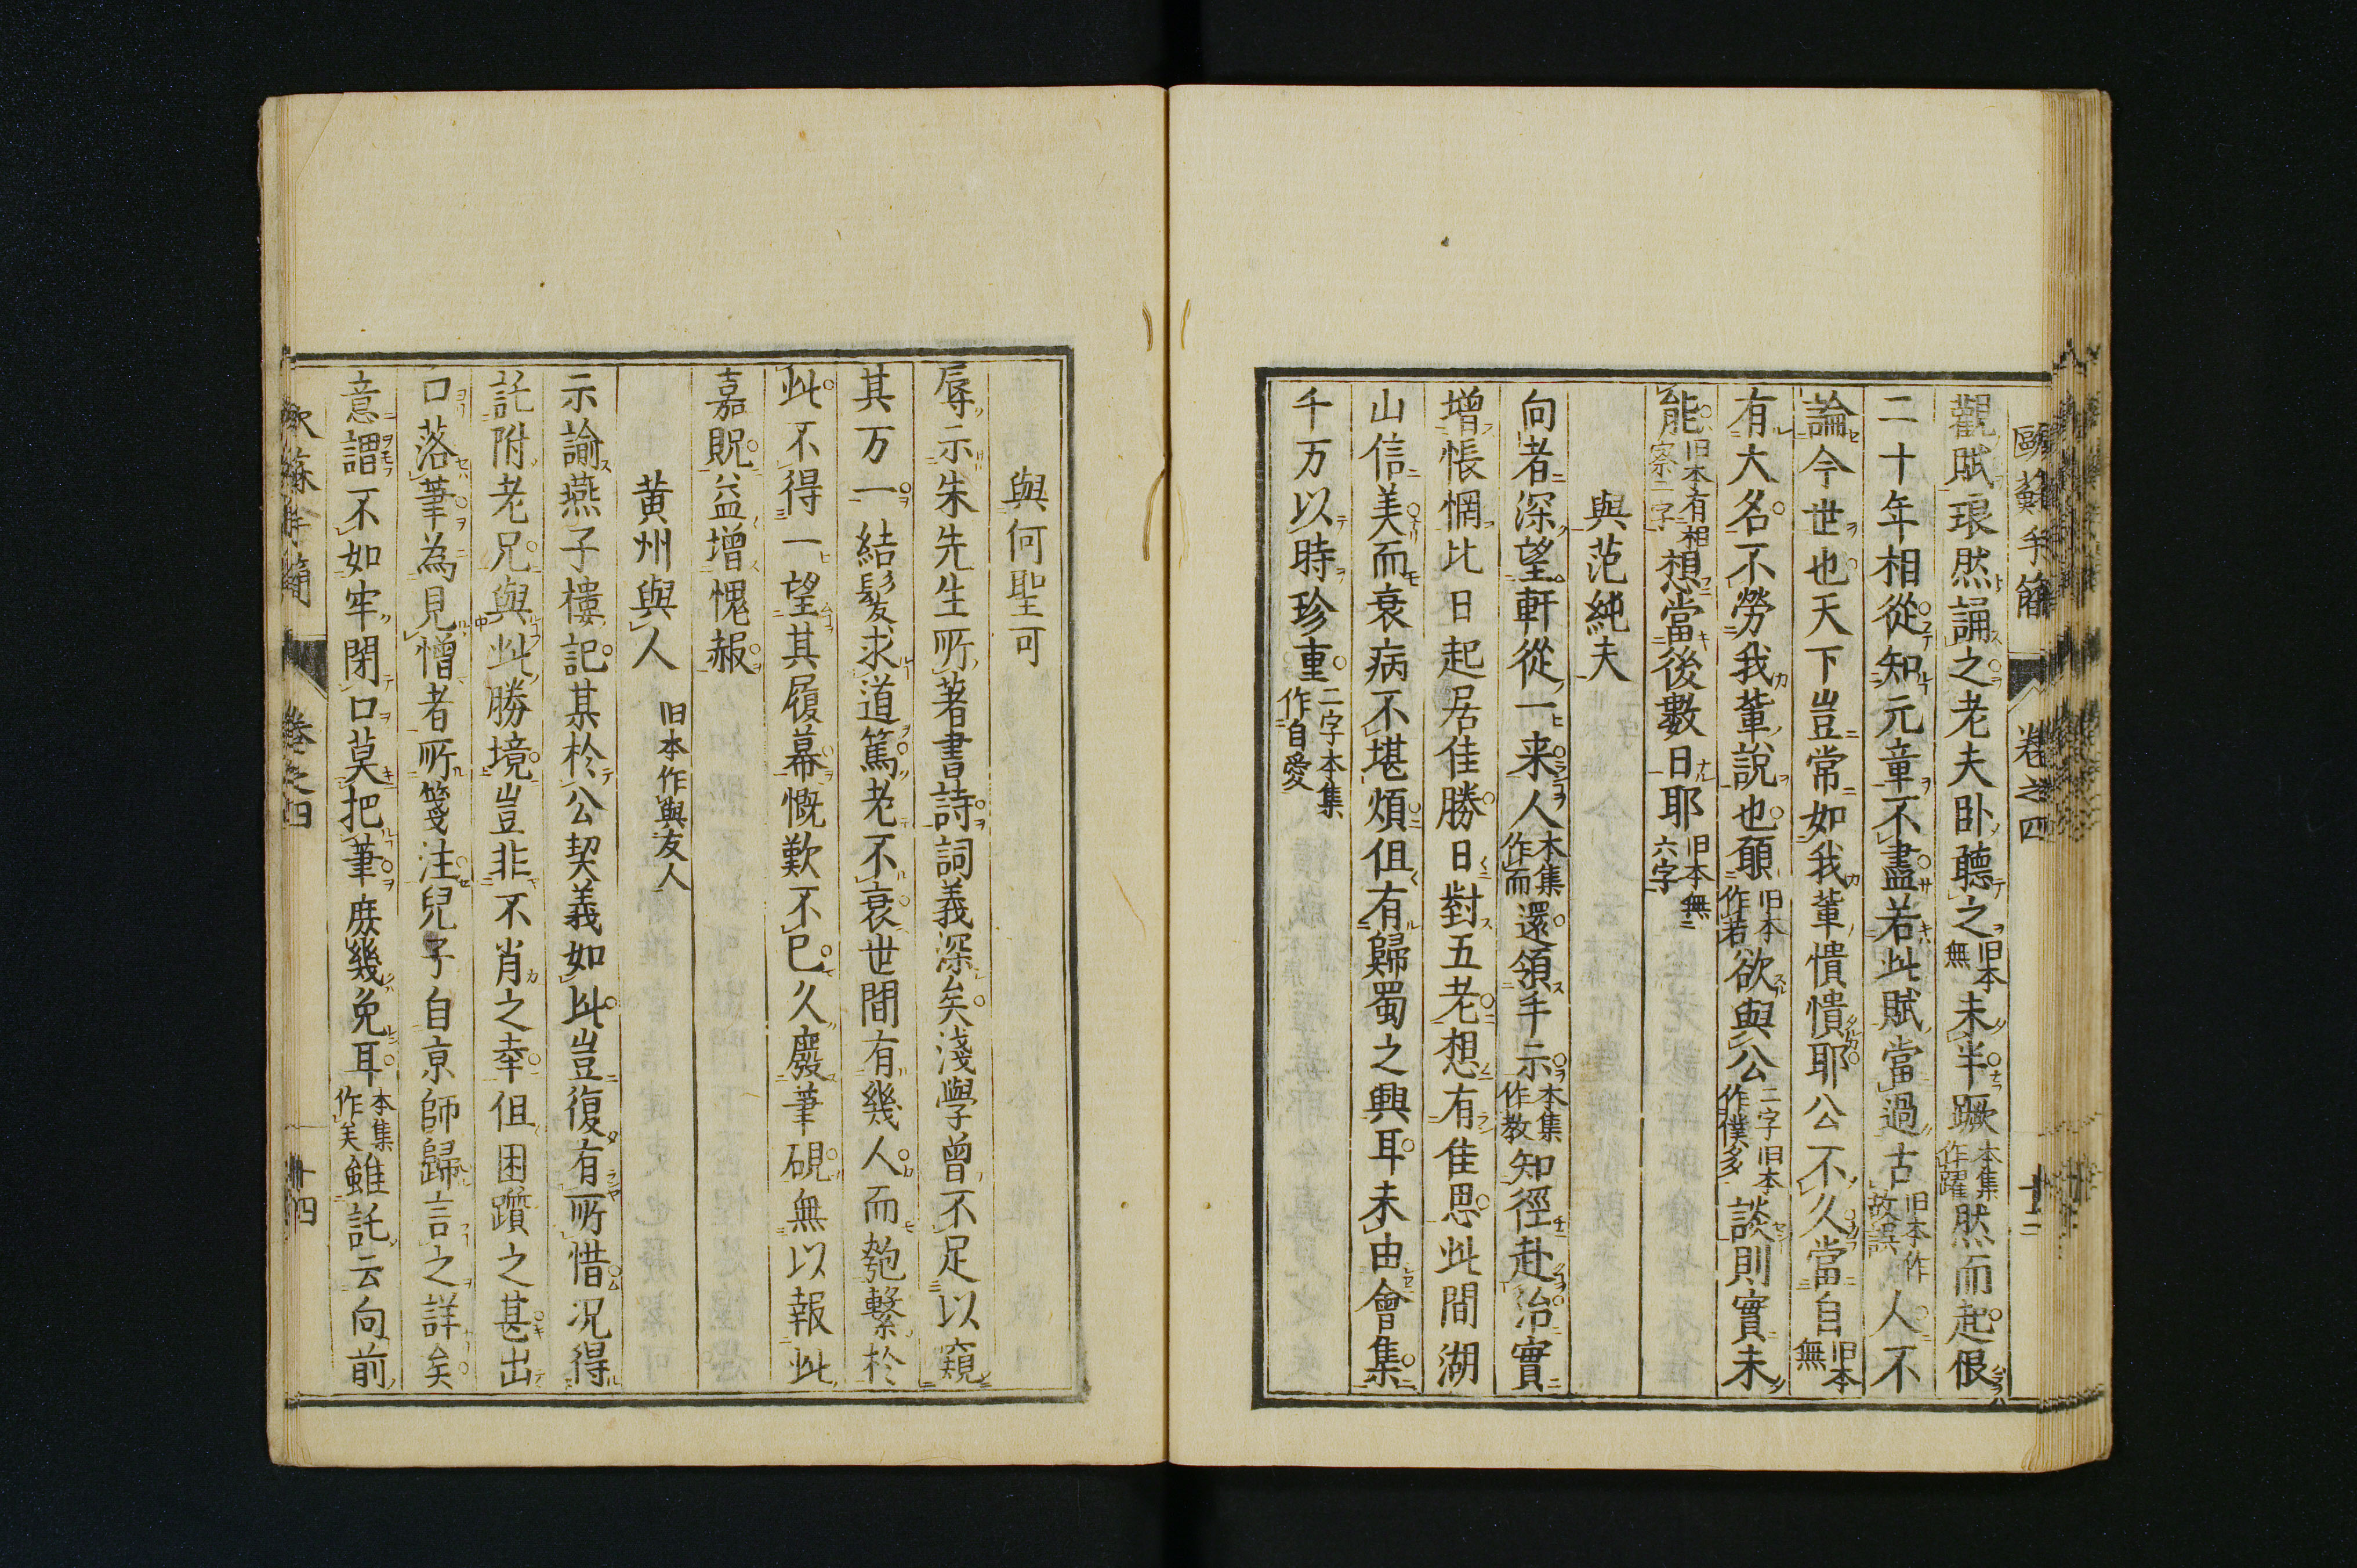 歐蘇手簡 卷之四 十三
觀賦琅然誦之老夫臥聽之旧本無未半蹶本集作躍然而起恨
二十年相從知元章不盡若此賦當過古旧本作故誤人不
論今世也天下豈常如我輩憒憒耶公不久當自旧本無
有大名不勞我輩說也願旧本作若欲與公二字旧本作僕多談則實未
能旧本有相察二字想當後數日耶旧本無六字
與范純夫
向者深望軒從一来人本集作而還領手示本集作教知徑赴治實
增悵惘比日起居佳勝日對五老想有佳思此間湖
山信美而衰病不堪煩但有歸蜀之興耳未由會集
千万以時珍重二字本集作自愛
與何聖可
辱示朱先生所著書詩詞義深矣淺學曾不足以窺
其万一結髮求道篤老不衰世間有幾人而匏繫於
此不得一望其履幕慨歎不已久廢筆硯無以報此
嘉貺益增愧赧
黃州與人 旧本作與友人
示諭燕子樓記某於公契義如此豈復有所惜况得
託附老兄與此勝境豈非不肖之幸但困躓之甚出
口落筆為見憎者所箋注兒子自京師歸言之詳矣
意謂不如牢閉口莫把筆庶幾免耳本集作矣雖託云向前
歐蘇手簡 卷之四 十四